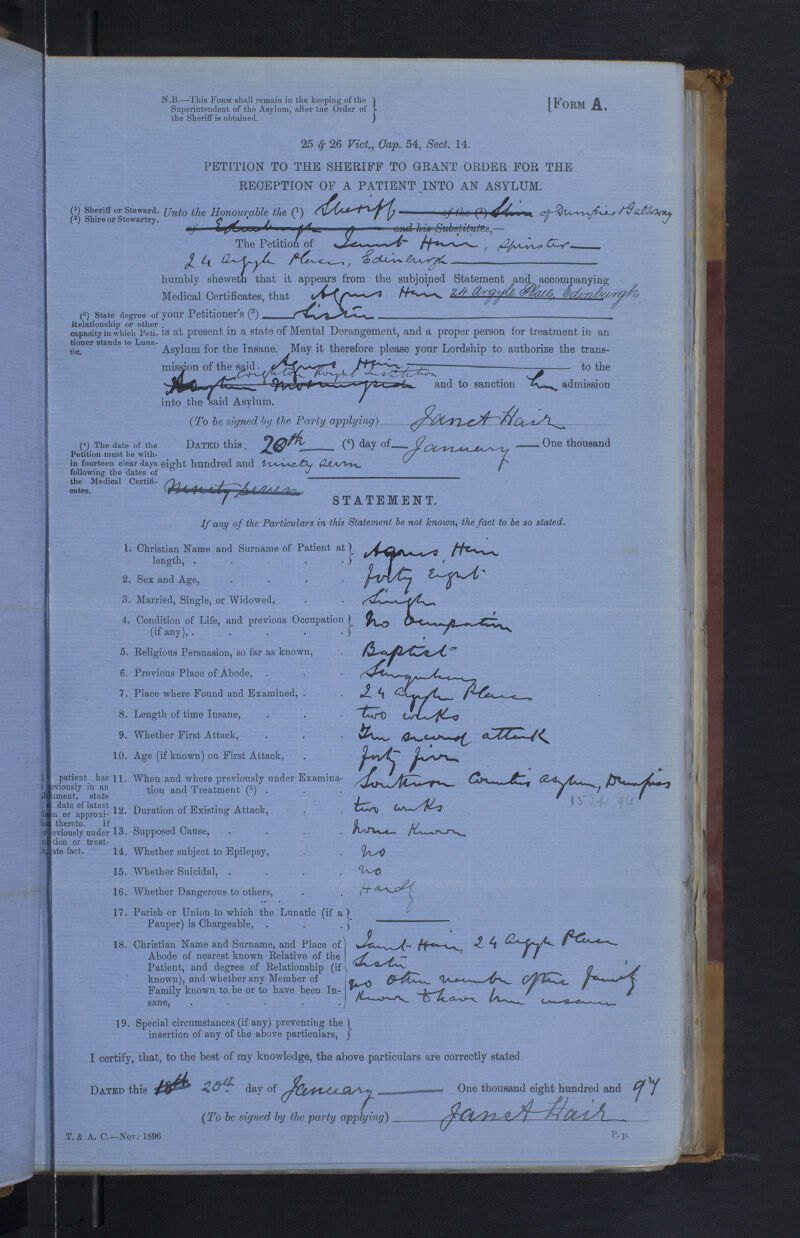 N.B.—This Form shall remain in the keeping of the
Superintendent of the Asylum, after the Order of
the Sheriff is obtained.
[Form A.
25 & 26 Vict., Cap. 54, Sect. 14.
PETITION TO THE SHERIFF TO GRANT ORDER FOR THE
RECEPTION OF A PATIENT INTO AN ASYLUM.
(1) Sheriff or Steward.
(2) Shire or Stewartry.
Unto the Honourable the (1) Sheriff of the (2) Shire of Dumfries & Galloway
of Edinburgh and his Substitutes,—
The Petition of Janet Hair, Spinster
24 Argyle Place, Edinburgh
humbly sheweth that it appears from the subjoined Statement and accompanying
Medical Certificates, that Agnes Hair 24 Argyle Place, Edinburgh
(3) State degree of
Relationship or other
capacity in which Peti-
tioner stands to Luna-
tic.
your Petitioner's (3) Sister
is at present in a state of Mental Derangement, and a proper person for treatment in an
Asylum for the Insane. May it therefore please your Lordship to authorize the trans-
mission of the said Agnes Hair to the
Crichton Royal Institution
Asylum Morningside and to sanction her admission
into the said Asylum.
(To be signed by the Party applying) Janet Hair
(4) The date of the
Petition must be with-
in fourteen clear days
following the dates of
the Medical Certifi-
cates.
Dated this 20th (4) day of January One thousand
eight hundred and ninety seven
Ninety Seven
STATEMENT.
If any of the Particulars in this Statement be not known, the fact to be so stated.
1. Christian Name and Surname of Patient at
length, . . . . . Agnes Hair
2. Sex and Age, . . . . forty Eight
3. Married, Single, or Widowed, . . Single
4. Condition of Life, and previous Occupation
(if any), . . . . . No Occupation
5. Religious Persuasion, so far as known, . Baptist
6. Previous Place of Abode, . . .
7. Place where Found and Examined, . . 24 Argyle Place
8. Length of time Insane, . . . two weeks
9. Whether First Attack, . . . The second attack
10. Age (if known) on First Attack, . . forty five
patient has
eviously in an
state
date of latest
or approxi-
thereto. If
eviously under
tion or treat-
ate fact.
11. When and where previously under Examina-
tion and Treatment (5) . . . Southern Counties Asylum, Dumfries
12. Duration of Existing Attack, . . two weeks
13. Supposed Cause, . . . . none Known
14. Whether subject to Epilepsy, . . no
15. Whether Suicidal, . . . . no
16. Whether Dangerous to others, . . Hardly
17. Parish or Union to which the Lunatic (if a
Pauper) is Chargeable, . . .
18. Christian Name and Surname, and Place of
Abode of nearest known Relative of the
Patient, and degree of Relationship (if
known), and whether any Member of
Family known to be or to have been In-
sane, . . . . .
Janet Hair, 24 Argyle Place
Sister
no other member of the family
Known to have been insane
19. Special circumstances (if any) preventing the
insertion of any of the above particulars,
I certify, that, to the best of my knowledge, the above particulars are correctly stated.
Dated this 18th 20th day of January One thousand eight hundred and 97
(To be signed by the party applying) Janet Hair
T. & A. C.—Nov. 1896
P. p.